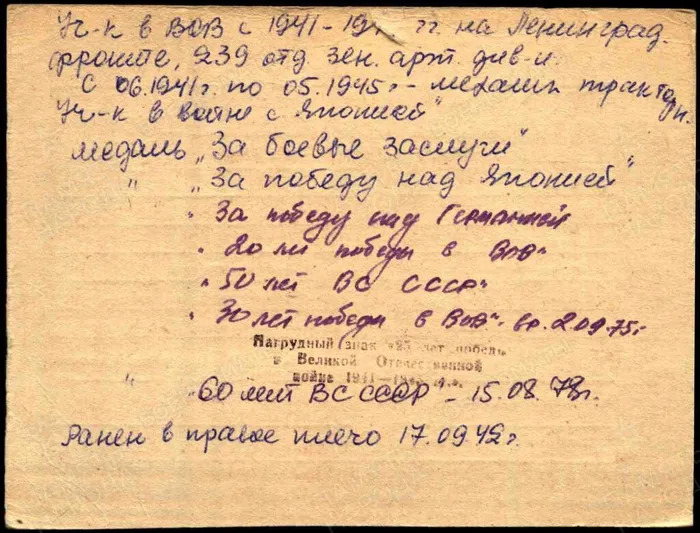 Уч-к в ВОВ с 1941-19 гг. на Ленинград.
фронте, 239 отд. зен. арт. див-н.
С 06.1941г. по 05.1945г - механик трактор.
Уч-к в войне с Японией"
медаль „За боевые заслуги"
" „За победу над Японией"
" За победу над Германией
" 20 лет победы в ВОВ"
" 50 лет ВС СССР"
" 30 лет победы в ВОВ"- вр. 2.09.75г
Нагрудный знак «25 лет победы
в Великой Отечественной
войне 1941—1945 г.г.
" „60 лет ВС СССР" - 15.08.79г.
Ранен в правое плечо 17.09.42г.